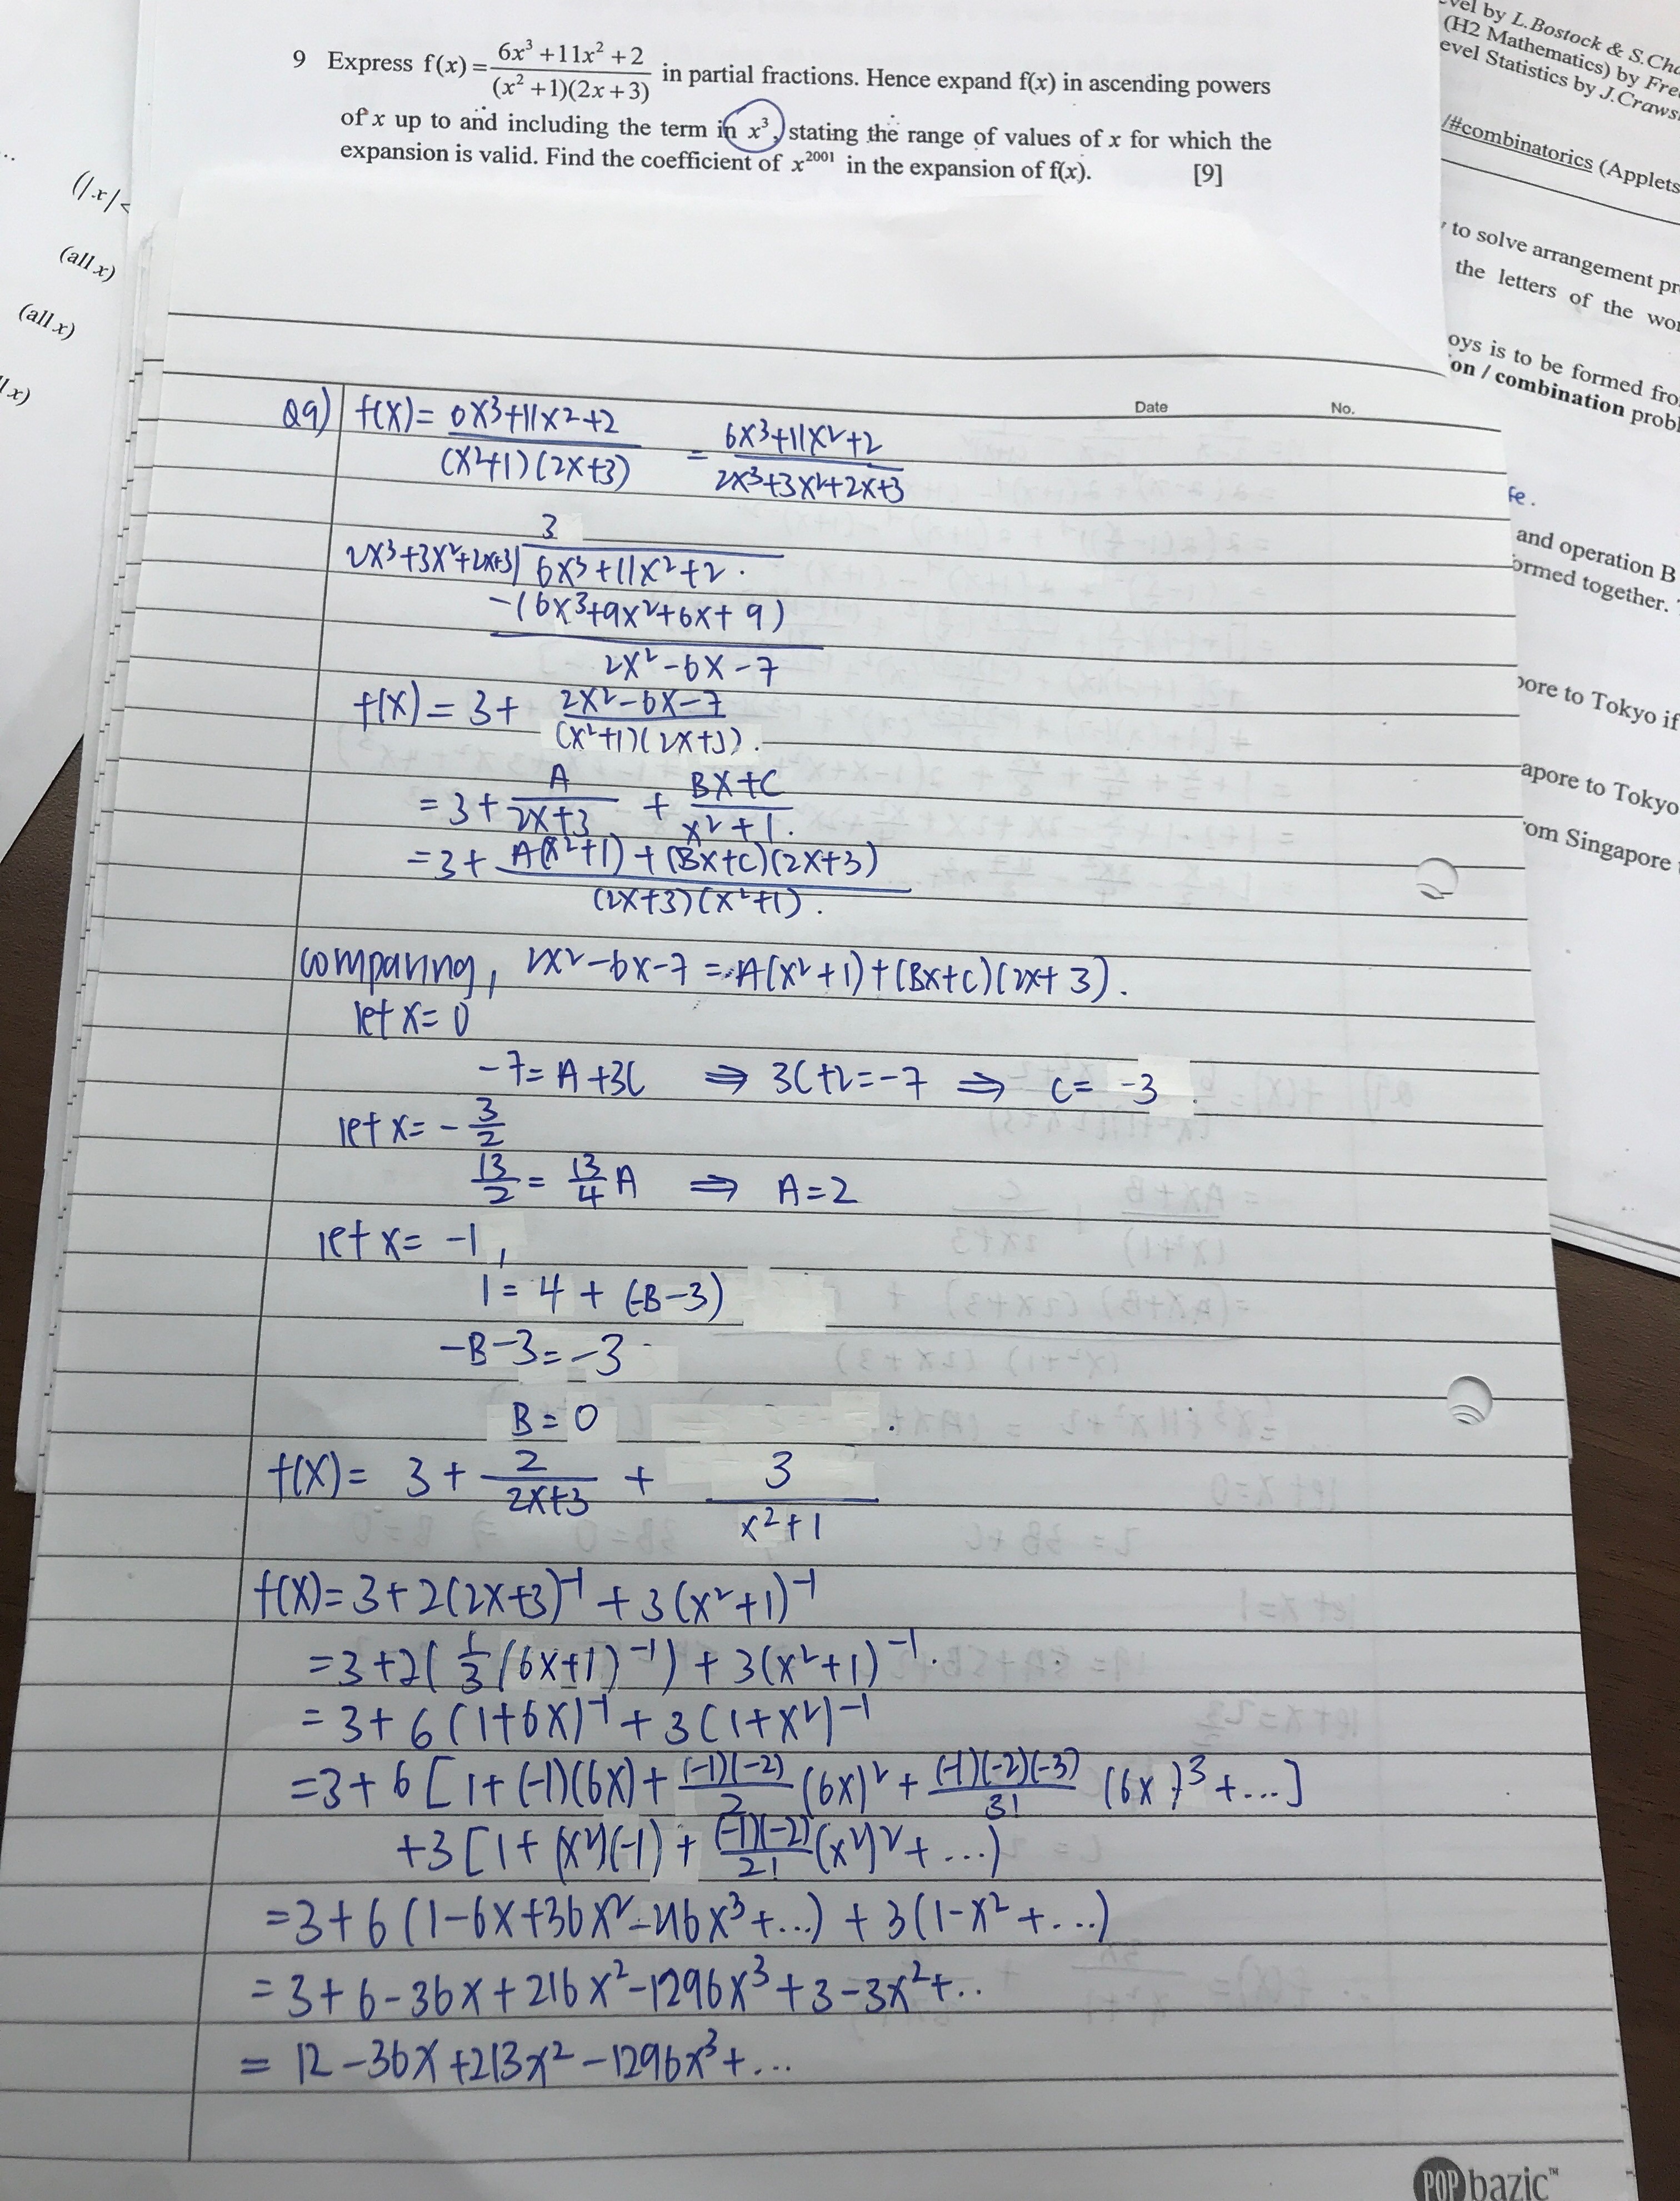 9 Express f(x) = \frac{6x^3+11x^2+2}{(x^2+1)(2x+3)} in partial fractions. Hence expand f(x) in ascending powers
of x up to and including the term in x^3, stating the range of values of x for which the
expansion is valid. Find the coefficient of x^{2001} in the expansion of f(x). [9]
(|x|<
(all x)
(all x)
x)
evel by L.Bostock & S.Cha
(H2 Mathematics) by Fre
evel Statistics by J.Craws
/#combinatorics (Applets
to solve arrangement pr
the letters of the wor
oys is to be formed fro
on / combination probl
fe.
and operation B
ormed together.
pore to Tokyo if
apore to Tokyo
om Singapore
Date No.
Q9) f(x) = \frac{6x^3+11x^2+2}{(x^2+1)(2x+3)} = \frac{6x^3+11x^2+2}{2x^3+3x^2+2x+3}
3
2x^3+3x^2+2x+3) 6x^3+11x^2+2.
-(6x^3+9x^2+6x+9)
2x^2-6x-7
f(x) = 3 + \frac{2x^2-6x-7}{(x^2+1)(2x+3)}.
= 3 + \frac{A}{2x+3} + \frac{Bx+C}{x^2+1}.
= 3 + \frac{A(x^2+1)+(Bx+C)(2x+3)}{(2x+3)(x^2+1)}.
comparing, 2x^2-6x-7 = A(x^2+1)+(Bx+C)(2x+3).
let x=0
-7 = A+3C ⇒ 3C+2=-7 ⇒ C= -3.
let x= -\frac{3}{2}
\frac{13}{2} = \frac{13}{4}A ⇒ A=2
let x= -1,
1 = 4 + (-B-3)
-B-3=-3
B=0
f(x) = 3 + \frac{2}{2x+3} + \frac{3}{x^2+1}
f(x)=3+2(2x+3)^{-1}+3(x^2+1)^{-1}
=3+2(\frac{1}{3}(6x+1)^{-1})+3(x^2+1)^{-1}.
=3+6(1+6x)^{-1}+3(1+x^2)^{-1}
=3+6[1+(-1)(6x)+\frac{(-1)(-2)}{2}(6x)^2+\frac{(-1)(-2)(-3)}{3!}(6x)^3+...]
+3[1+(x^2)(-1)+\frac{(-1)(-2)}{2!}(x^2)^2+...)
=3+6(1-6x+36x^2-216x^3+...)+3(1-x^2+...)
=3+6-36x+216x^2-1296x^3+3-3x^2+..
= 12-36x+213x^2-1296x^3+...
POP bazic™